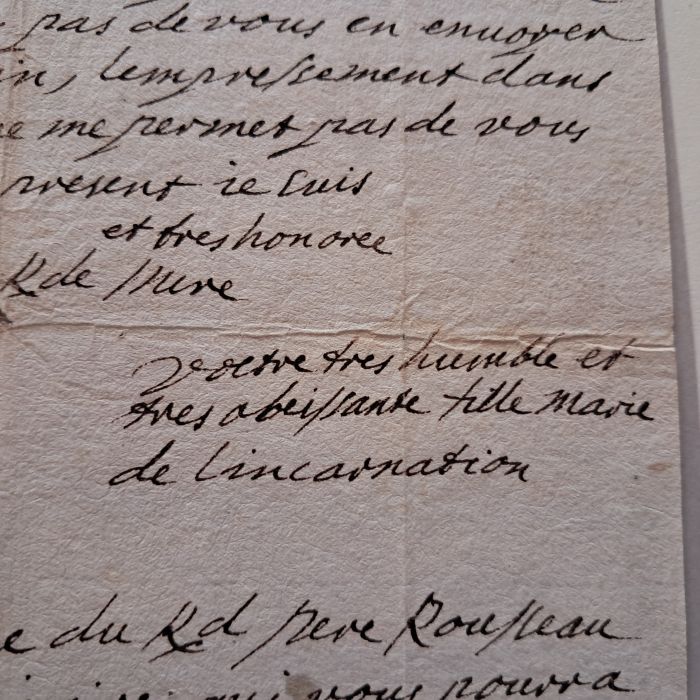 pas de vous en enuoyer
in, lempressement dans
me permet pas de vous
present ie suis
et tres honoree
Rde Mere
voctre tres humble et
tres obeissante fille marie
de lincarnation
e du Rd pere Rousseau
qui vous pourra